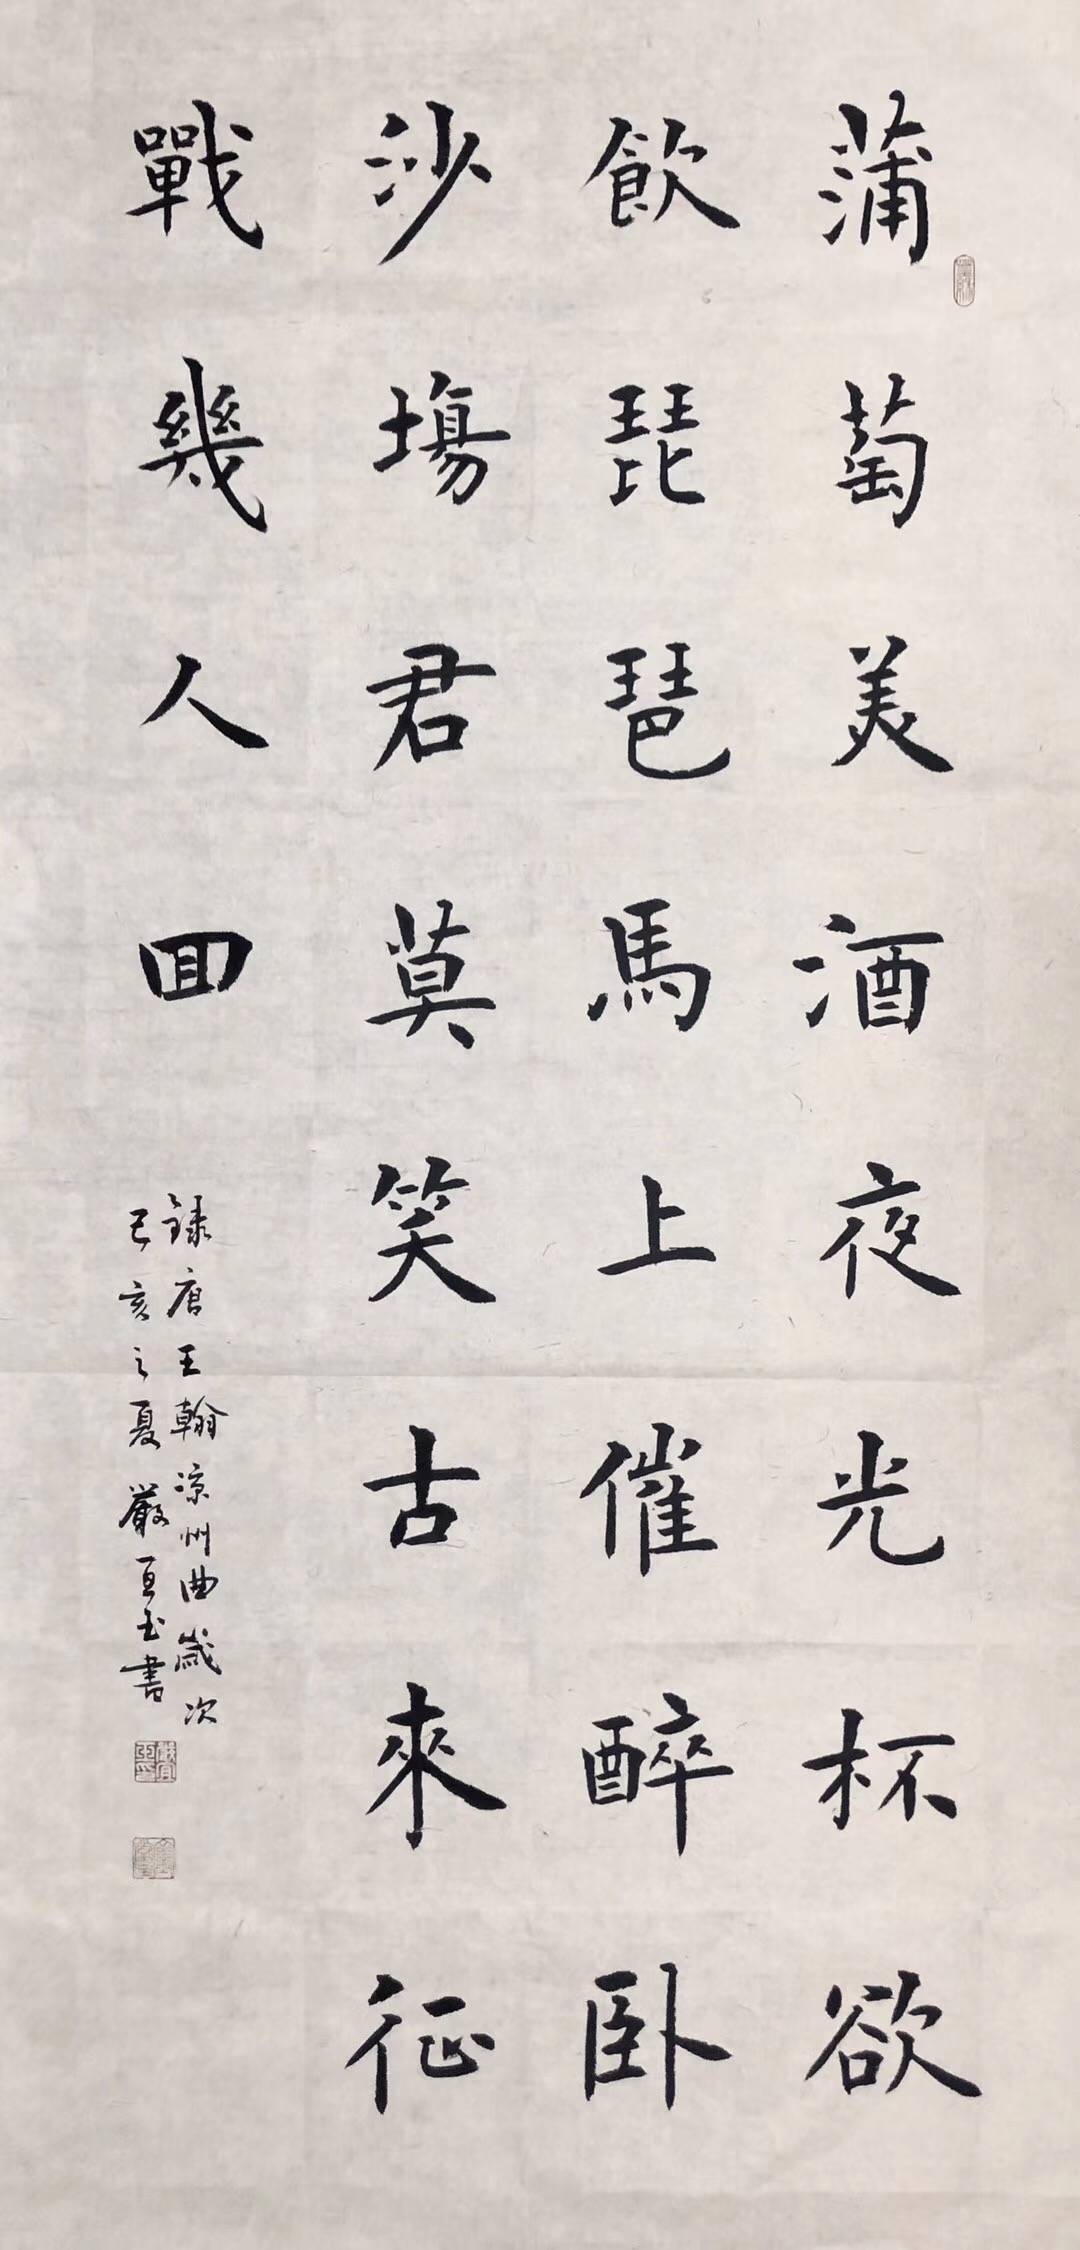 蒲萄美酒夜光杯欲
飲琵琶馬上催醉臥
沙塲君莫笑古來征
戰幾人回
録唐王翰凉州曲歲次
己亥之夏嚴亘玉書